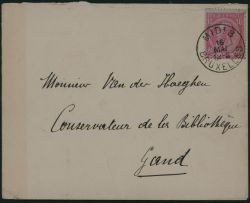 MIDI 3
16
MAI
BRUXELLES
Monsieur Van der Haeghen
Conservateur de la Bibliothèque
Gand